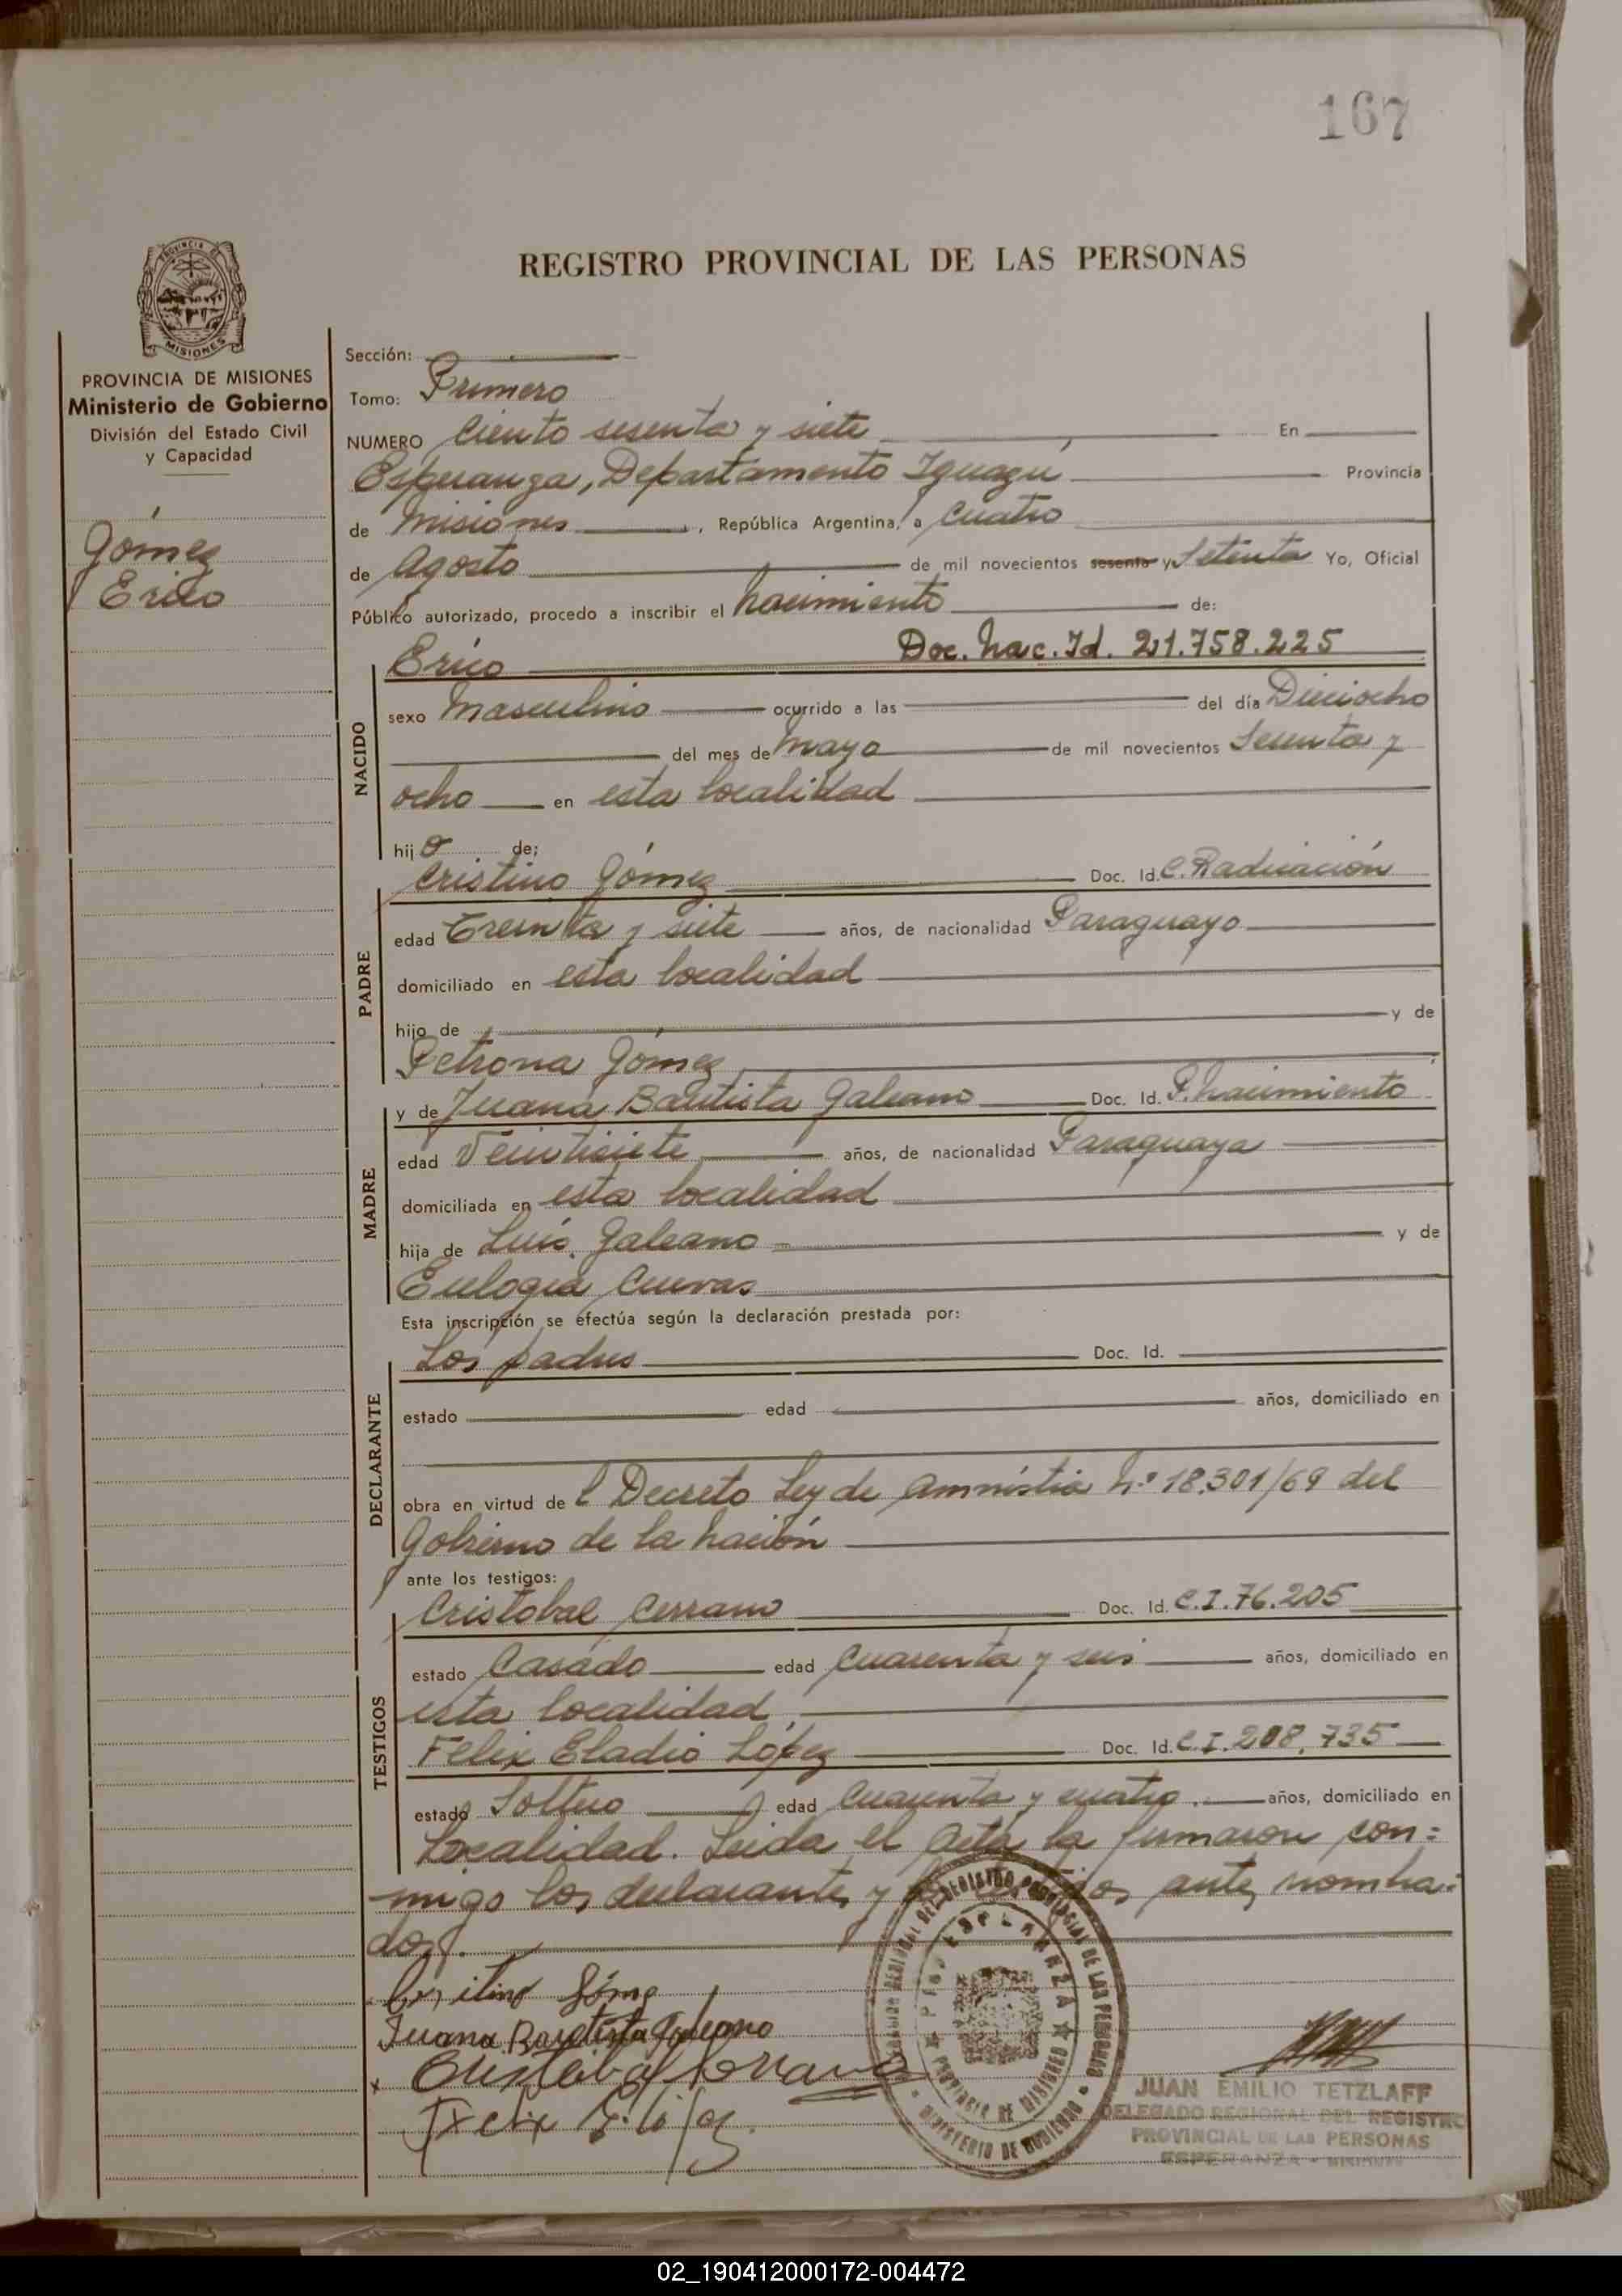 167
REGISTRO PROVINCIAL DE LAS PERSONAS
PROVINCIA DE MISIONES
Ministerio de Gobierno
División del Estado Civil
y Capacidad
Gómez
Erico
Sección:
Tomo: Primero
NUMERO Ciento sesenta y siete En
Esperanza, Departamento Iguazú Provincia
de Misiones, República Argentina, a Cuatro
de Agosto de mil novecientos sesenta y Setenta Yo, Oficial
Público autorizado, procedo a inscribir el nacimiento de:
Erico Doc. Nac. Id. 21.758.225
NACIDO
sexo Masculino ocurrido a las del día Dieciocho
del mes de Mayo de mil novecientos Sesenta y
ocho en esta localidad
hijo de;
Cristino Gómez Doc. Id. C. Radicación
PADRE
edad Treinta y siete años, de nacionalidad Paraguayo
domiciliado en esta localidad
hijo de y de
Petrona Gómez
y de Juana Bautista Galeano Doc. Id. P. Nacimiento
MADRE
edad Veintisiete años, de nacionalidad Paraguaya
domiciliada en esta localidad
hija de Luis Galeano y de
Eulogia Cuevas
Esta inscripción se efectúa según la declaración prestada por:
Los padres Doc. Id.
DECLARANTE
estado edad años, domiciliado en
obra en virtud de l Decreto Ley de Amnistia N.º 18.301/69 del
Gobierno de la Nación
ante los testigos:
Cristobal Cerrano Doc. Id. C.I. 76.205
TESTIGOS
estado Casado edad Cuarenta y seis años, domiciliado en
esta localidad
Felix Eladio López Doc. Id. C.I. 208.735
estado Soltero edad Cuarenta y cuatro años, domiciliado en
Localidad. Leida el Acta la firmaron con=
migo los declarantes y los testigos ante nombra=
dos.
Cristino Gómez
Juana Bautista Galeano
REGISTRO PROVINCIAL DE LAS PERSONAS
ESPERANZA
PROVINCIA DE MISIONES
MINISTERIO DE GOBIERNO
JUAN EMILIO TETZLAFF
DELEGADO REGIONAL DEL REGISTRO
PROVINCIAL DE LAS PERSONAS
ESPERANZA - MISIONES
02_190412000172-004472